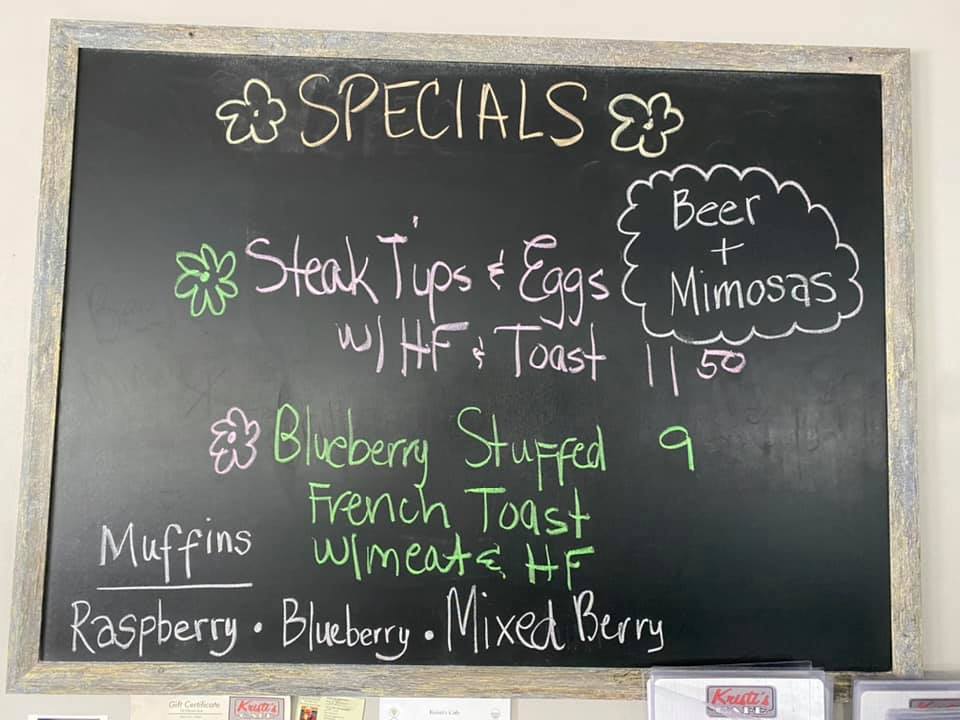 SPECIALS
Beer
+
Mimosas
Steak Tips & Eggs
w/ HF & Toast 11 50
Blueberry Stuffed 9
French Toast
w/meat & HF
Muffins
Raspberry • Blueberry • Mixed Berry
Gift Certificate
Kristi's
Kristi's Cafe
Kristi's
Kristi's